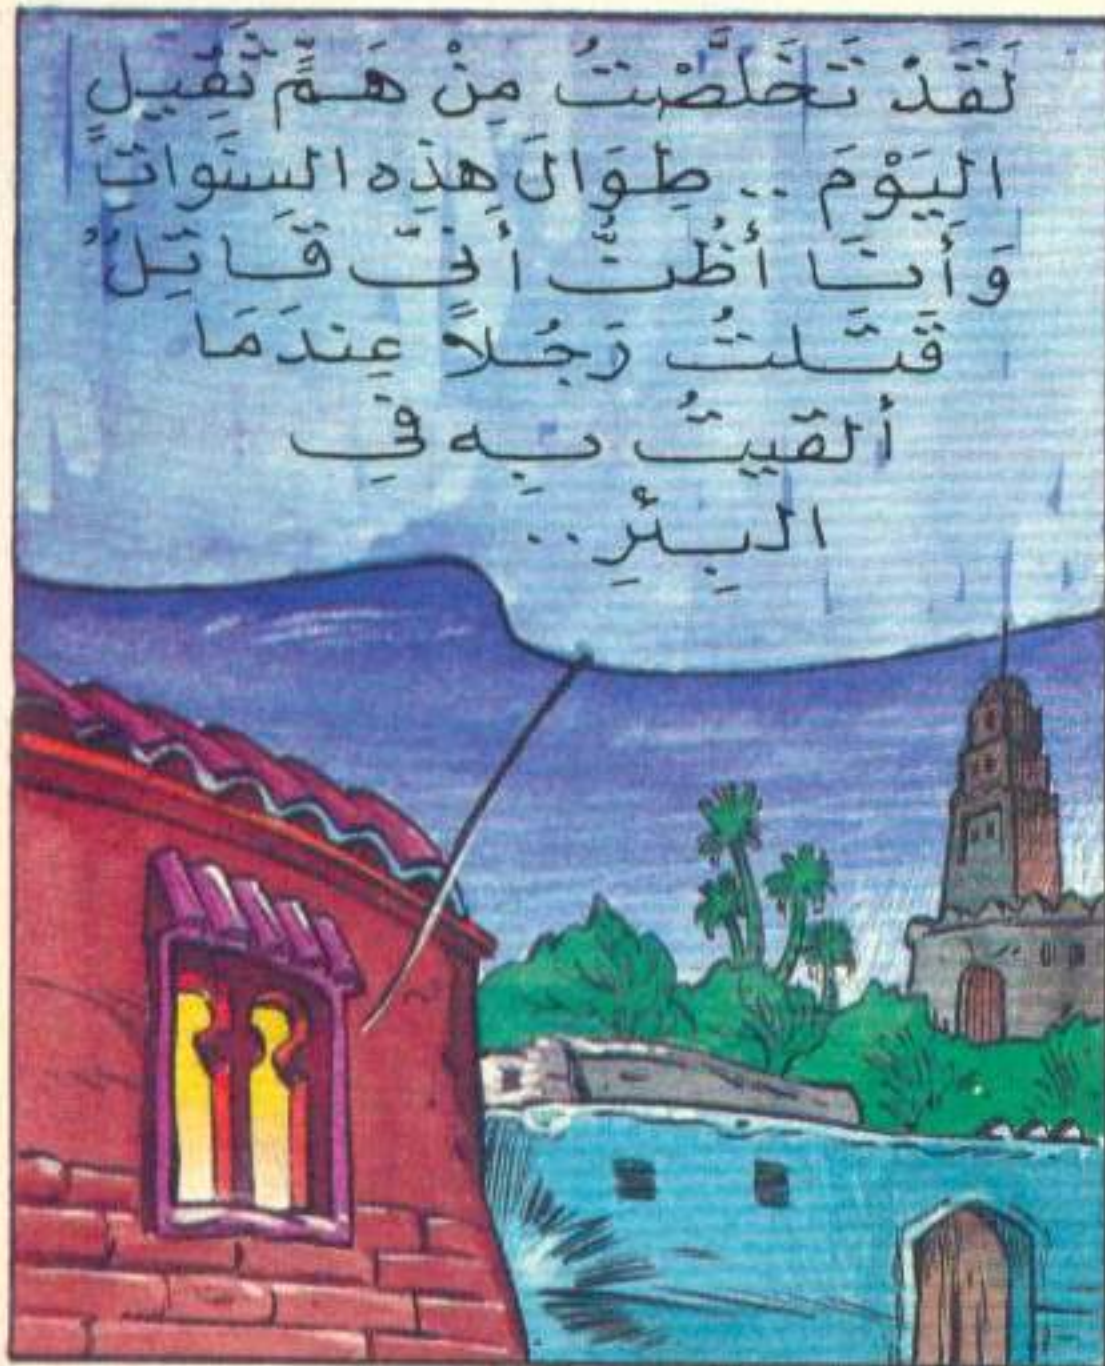 لَقَدْ تَخَلَّصْتُ مِنْ هَمٍّ ثَقِيلٍ
اليَوْمَ .. طِوَالَ هذِه السَنَواتِ
وَأَنَا أَظُنُّ أَنّي قَاتِلٌ
قَتَلتُ رَجُلاً عِندَمَا
ألقَيتُ بِه فِي
البِئْرِ ..